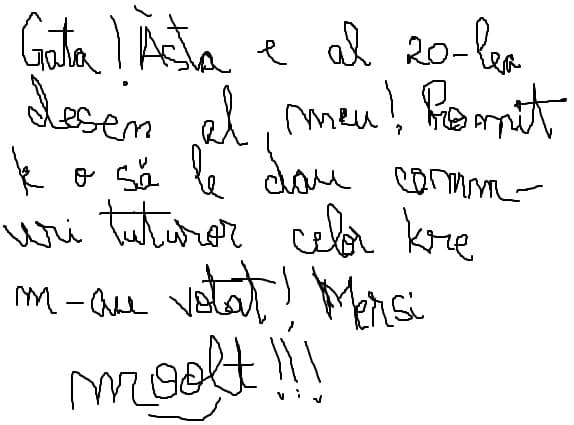 Gata! Ăsta e al 20-lea
desen al meu! Promit
k o să le dau comm-
uri tuturor celor kre
m-au votat! Mersi
moolt!!!